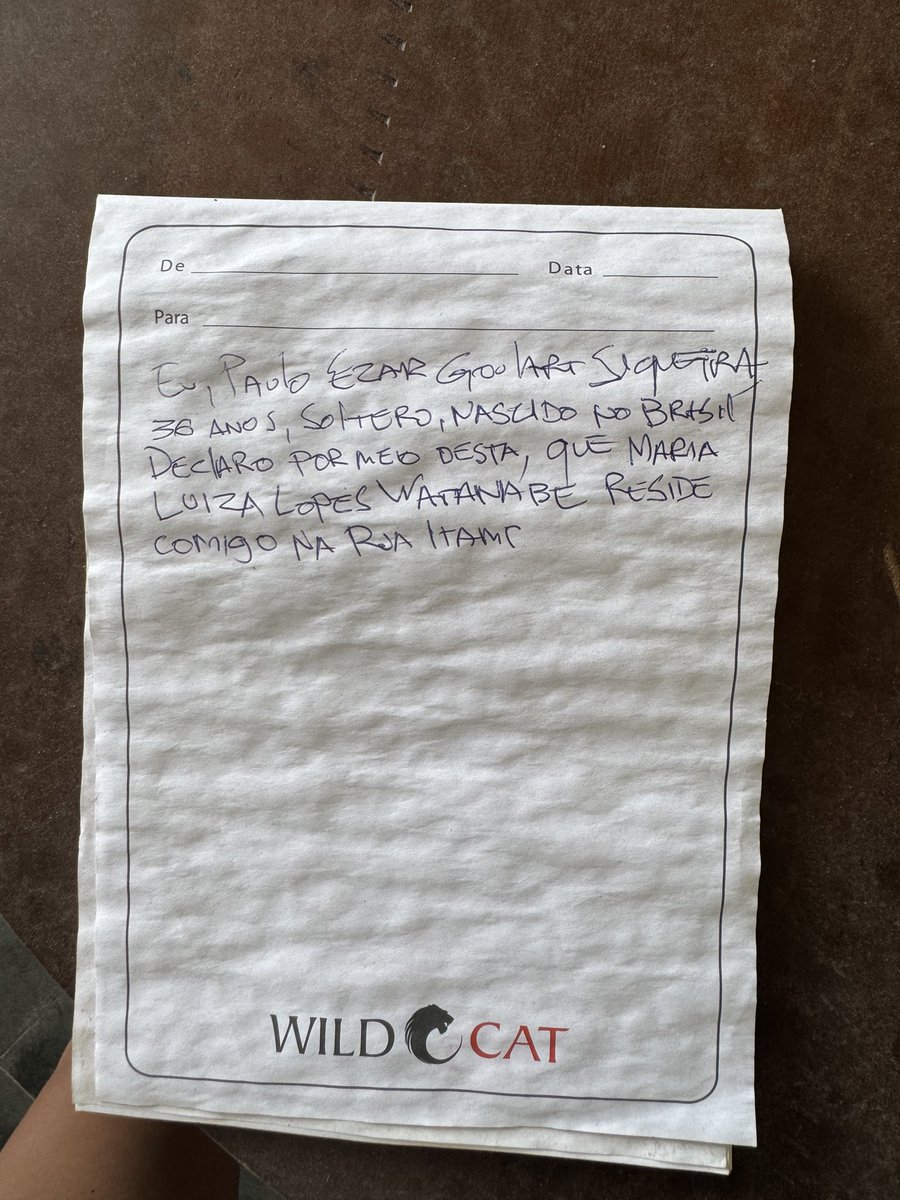 De Data
Para
Eu, Paulo Ezair Goulart Siqueira
36 anos, solteiro, nascido no Brasil
Declaro por meio desta, que Maria
Luiza Lopes Watanabe reside
comigo na Rua Itamr
WILD CAT